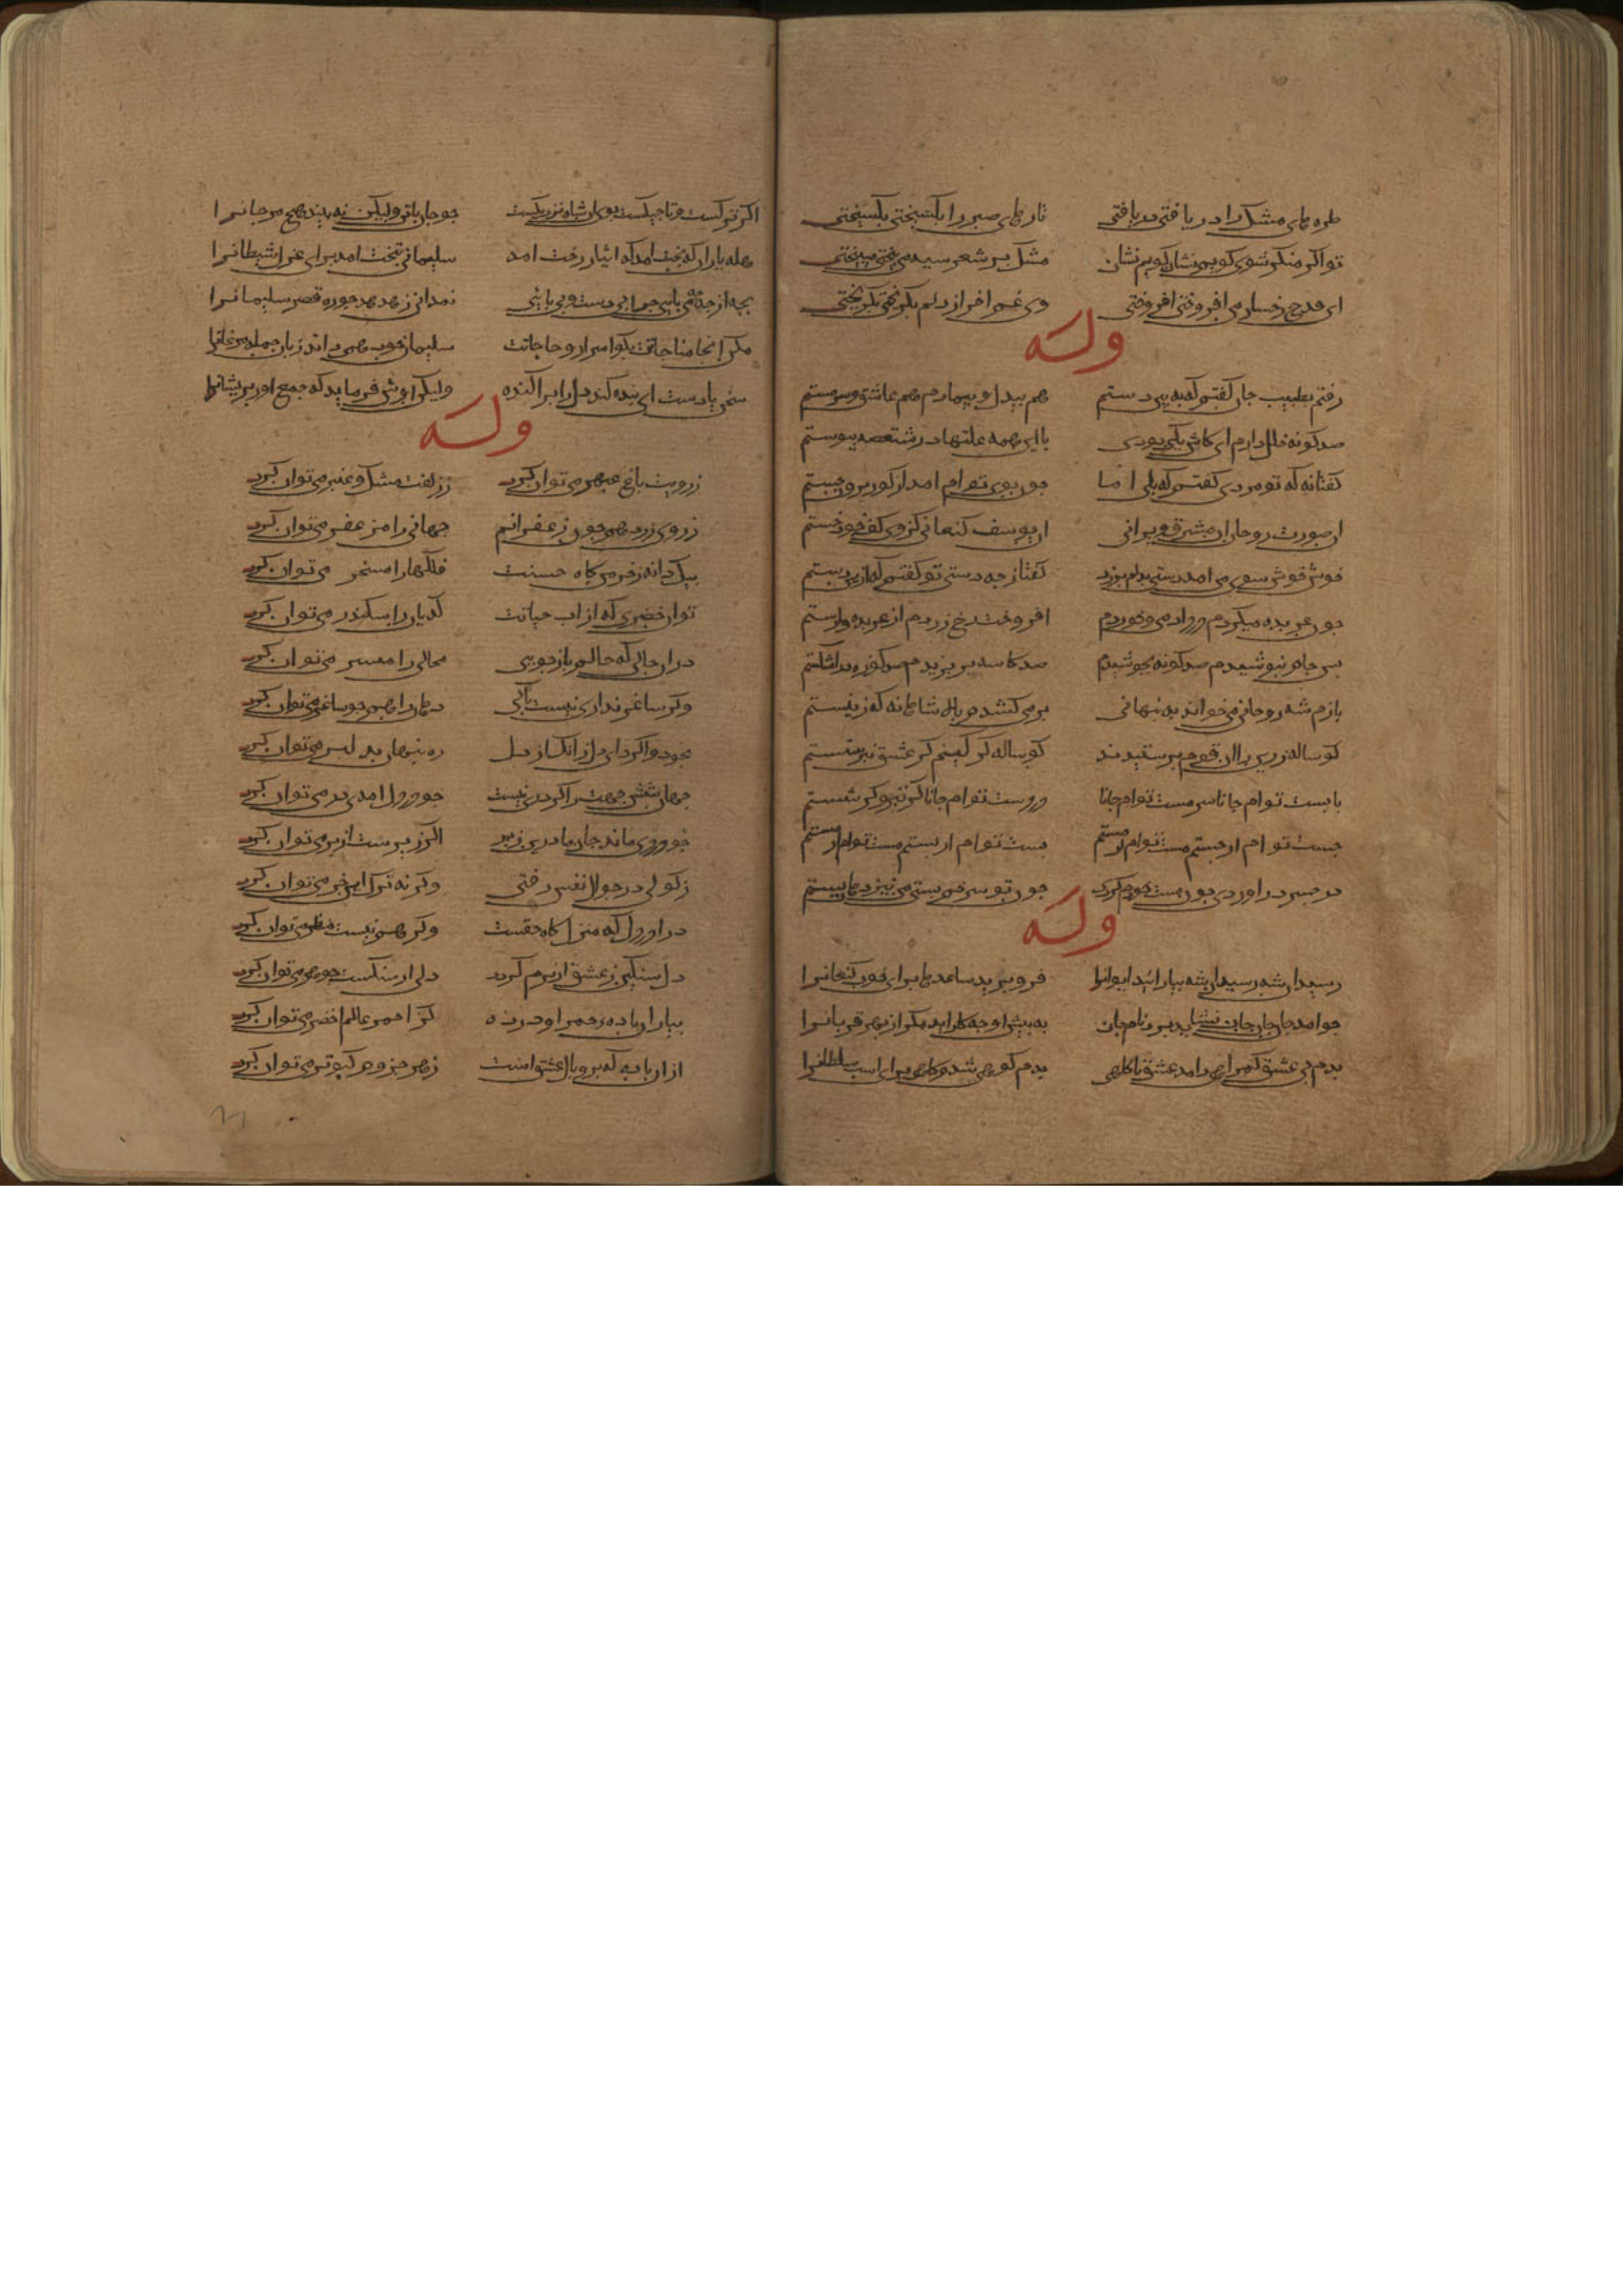 طره های مشک را در یافتی دریافتی تارهای صبر را بگسیختی بگسیختی
تو اگر منکر شوی گویم نشان گویم نشان مشک بر شعر سیه می بیختی می بیختی
ای قدح رخسار می افروختی افروختی وی غم اخر از دلم بگریختی بگریختی
وله
رفتم بطبیب جان گفتم که ببین دستم هم بیدل و بیمارم هم عاشق و سرمستم
صد گونه خلل دارم ای کاش یکی بودی با این همه علتها در شنقصه پیوستم
گفتا نه که تو مردی گفتم که بلی اما چون بوی توام امد از گور برون جستم
ان صورت روحانی ان مشرق یزدانی ان یوسف کنعانی کزوی کف خود خستم
خوش خوش سوی من امد دستی بدلم برزد گفتا ز چه دستی تو گفتم که ازین دستم
چون عربده میکردم درداد می و خوردم افروخت رخ زردم از عربده وارستم
پس جامه نپوشیدم صد گونه بجوشیدم صد کاسه بریزیدم صد کوزه دراشکستم
بازم شه روحانی می خواند به پنهانی بر می کشدم بالا شاهانه که زین پستم
گوساله زرین را ان قوم پرستیدند گوساله گرگینم گر عشق نپرستم
پابست توام جانا سرمست توام جانا در دست توام جانا گر تیرم و گر شستم
جست توام ار جستم مست توام ار مستم پست توام ار پستم هست توام ار هستم
در چرخ دراوردی چون مست خودم کردی چون تو سر خم بستی من نیز دهان بستم
وله
رسید ان شه رسید ان شه بیارائید ایوانرا فرو برید ساعدها برای خوب کنعانرا
چو امد جان جان جان نشاید برد نام جان به پیش او چه کار اید مگر از بهر قربانرا
بدم بی عشق گمراهی درامد عشق ناگاهی بدم کوهی شدم کاهی برای اسب سلطانرا
اگر ترکست و تاجیکست بوی ان شاه نزدیکست چو جان با تن ولیکن نه بیند هیچ مر جانرا
هله یاران که بخت امد که ایثار رخت امد سلیمانی بتخت امد برای عزل شیطانرا
بجه از جا چه می پایی چرا بی دست و بی پایی نمدانی ز هدهد جو ره قصر سلیمانرا
مگر انجا مناجاتت بگو اسرار و حاجاتت سلیمان خود همی داند زبان جمله مرغانرا
سخن بادست ای بنده کند دل را پراکنده ولیکن اوش فرماید که جمع اور پریشانرا
وله
ز رویت باغ عبهر می توان کرد ز زلفت مشک و عنبر می توان کرد
ز روی زرد همچون زعفرانم جهانی را مزعفر می توان کرد
بیک دانه ز خرمن گاه حسنت فلکها را مسخر می توان کرد
توان خضری که از اب حیاتت گدایان را سکندر می توان کرد
در ان حالی که حالم باز جویی محالی را میسر می توان کرد
وگر ساغر نداری نیست باکی دهان را همچو ساغر می توان کرد
بخود واگرد ای دل زانک از دل ره پنهان بدلبر می توان کرد
جهان شش جهت را گر دری نیست چو در دل امدی در می توان کرد
چو دردی ماند جان ما درین زیر اگر زیرست از بر می توان کرد
ز گولی در جوال نفس رفتی وگر نه ترک این خر می توان کرد
درا در دل که منزل گاه حقست وگر هم نیست منظر می توان کرد
دل سنگین ز عشق ار نرم گردد دل ار سنگست جوهر می توان کرد
بیار ان باده حمرا و درده کز احمر عالم اخضر می توان کرد
ازان باده که پر و بال عشق است ز هر جزوم کبوتر می توان کرد